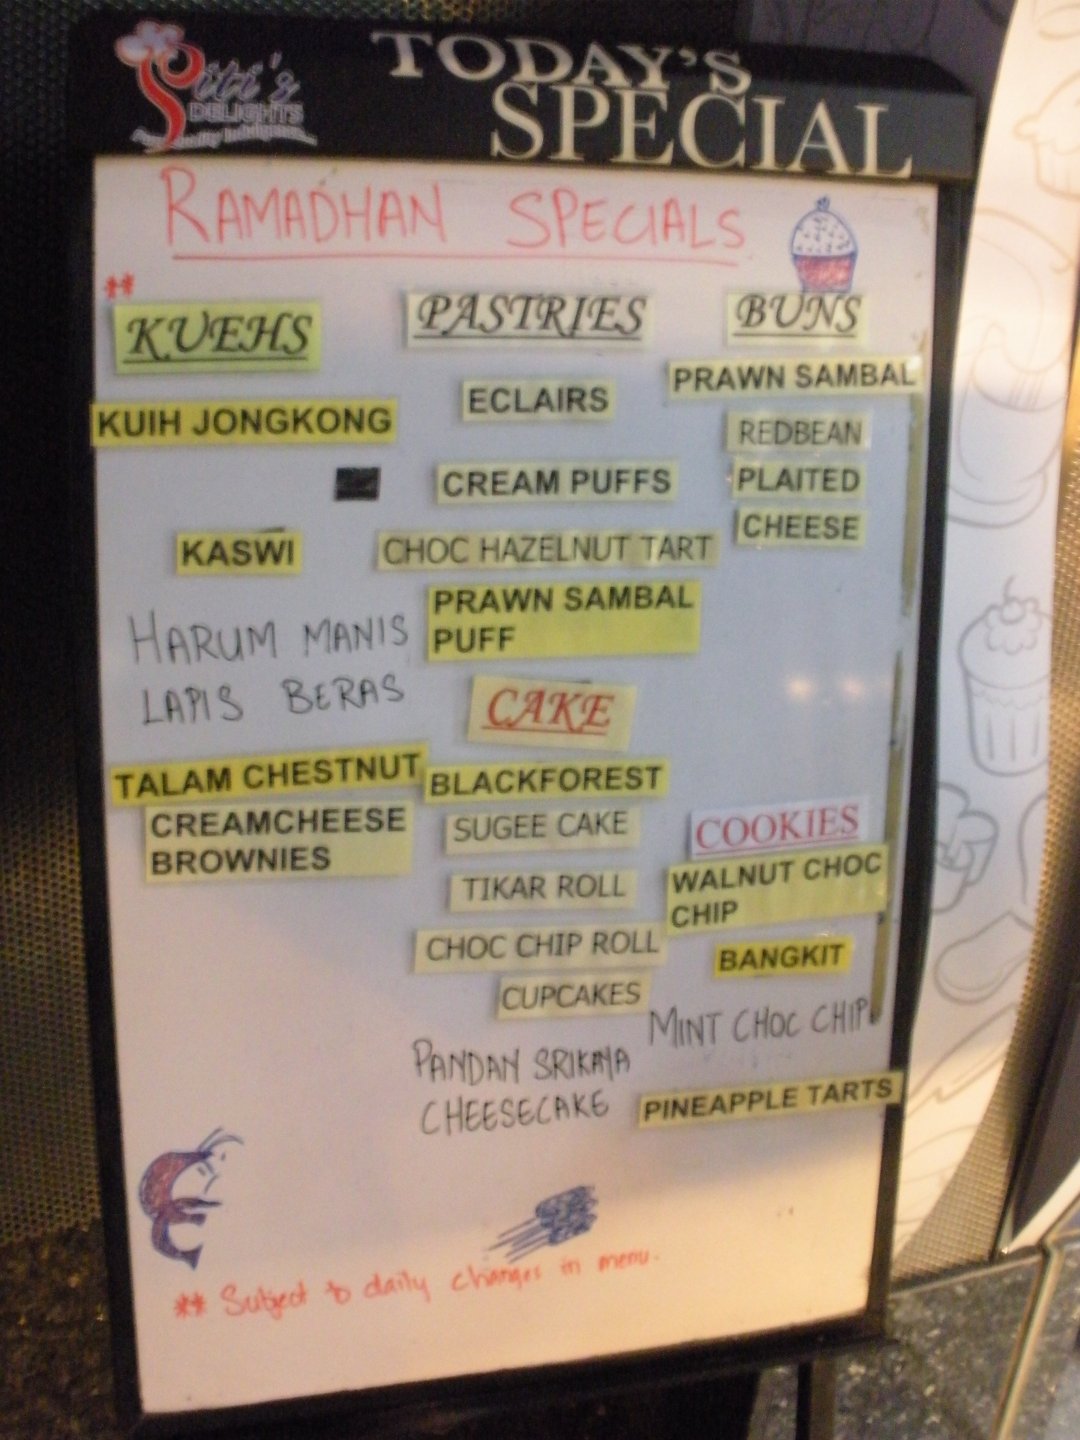 Siti's
DELIGHTS
TODAY'S
SPECIAL
RAMADHAN SPECIALS
**
KUEHS
KUIH JONGKONG
KASWI
HARUM MANIS
LAPIS BERAS
TALAM CHESTNUT
CREAMCHEESE
BROWNIES
PASTRIES
ECLAIRS
CREAM PUFFS
CHOC HAZELNUT TART
PRAWN SAMBAL
PUFF
CAKE
BLACKFOREST
SUGEE CAKE
TIKAR ROLL
CHOC CHIP ROLL
CUPCAKES
PANDAN SRIKAYA
CHEESECAKE
BUNS
PRAWN SAMBAL
REDBEAN
PLAITED
CHEESE
COOKIES
WALNUT CHOC
CHIP
BANGKIT
MINT CHOC CHIP
PINEAPPLE TARTS
** Subject to daily changes in menu.